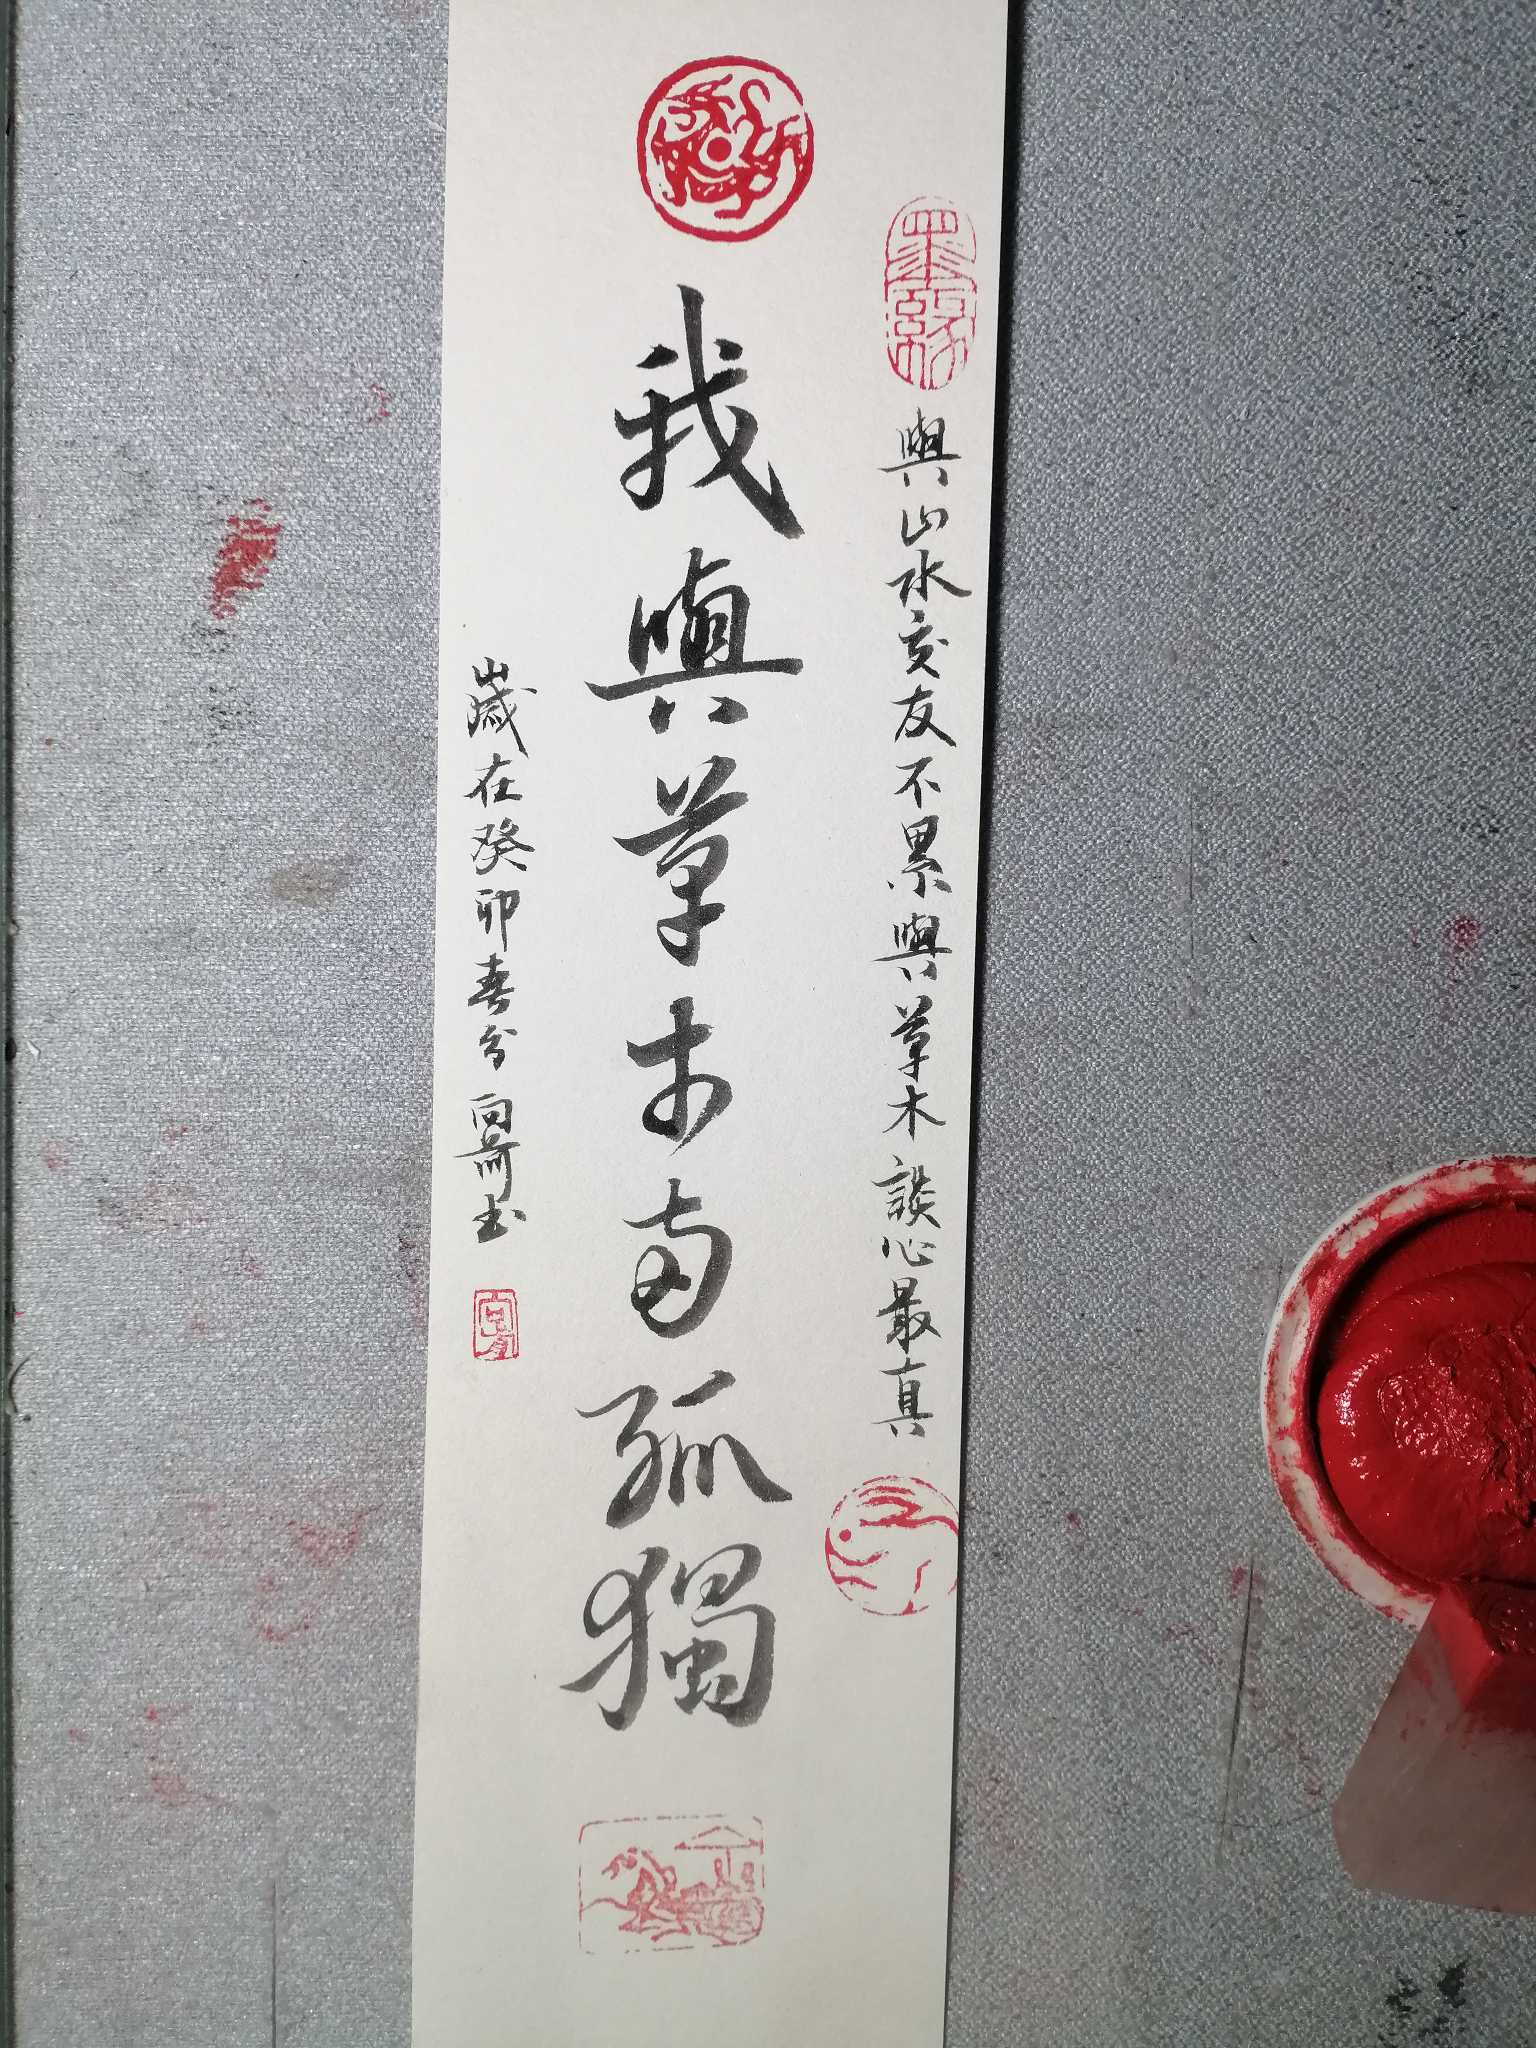 與山水交友不累與草木談心最真
我與草木兩孤獨
歲在癸卯春分向前書